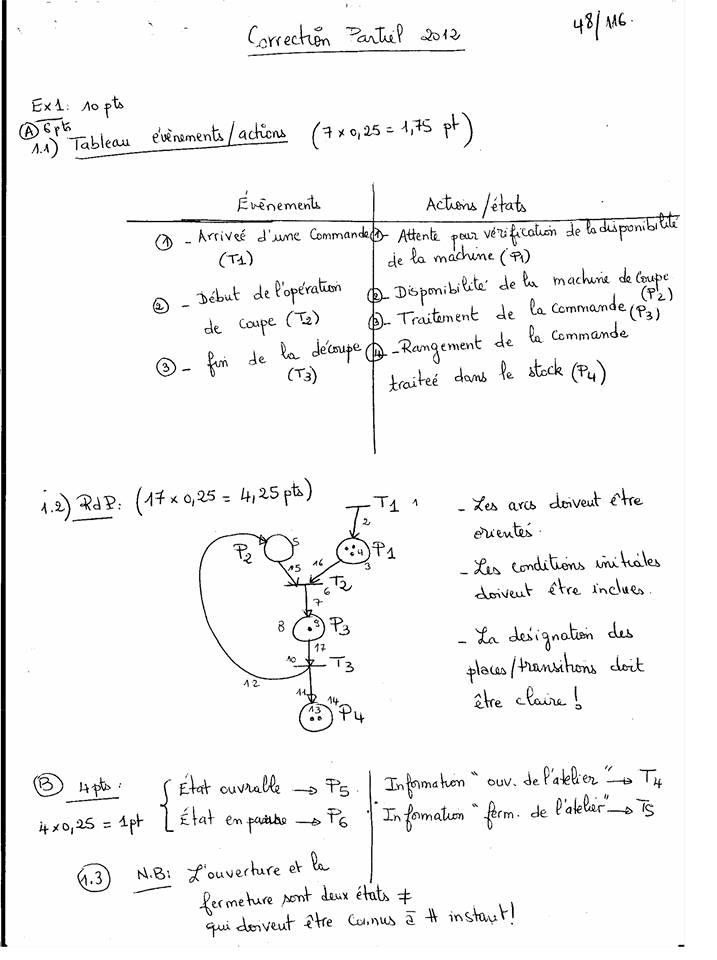 Correction Partiel 2012
48/116.
Ex1: 10 pts
(A) 6 pts
1.1) Tableau évènements/actions (7 x 0,25 = 1,75 pt)
Évènements
Actions/états
① - Arriveé d'une Commande
(T1)
② - Début de l'opération
de coupe (T2)
③ - fin de la découpe
(T3)
① - Attente pour vérification de la disponibilité
de la machine (P1)
② - Disponibilité de la machine de coupe
(P2)
③ - Traitement de la commande (P3)
④ - Rangement de la commande
traiteé dans le stock (P4)
1.2) RdP: (17 x 0,25 = 4,25 pts)
T1 1
2
P2 5
4 P1
3
15 16
T2
6
7
8 9 P3
17
10 T3
12
11 14
13 P4
- Les arcs doivent être
orientés.
- Les conditions initiales
doivent être inclues.
- La désignation des
places/transitions doit
être claire !
(B) 4 pts :
4 x 0,25 = 1pt
État ouvrable → P5.
État en pause → P6
Information "ouv. de l'atelier" → T4
Information "ferm. de l'atelier" → T5
1.3
N.B: L'ouverture et la
fermeture sont deux états ≠
qui doivent être connus à # instant!